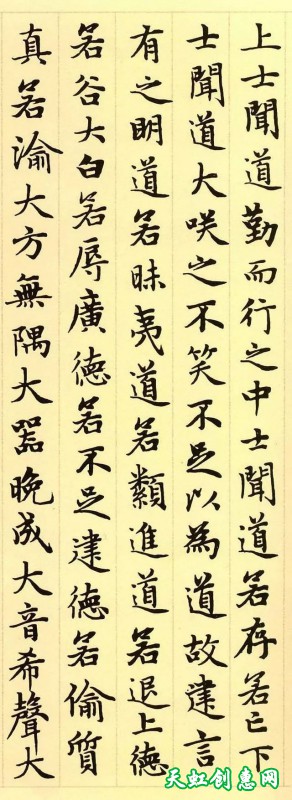 上士聞道勤而行之中士聞道若存若亡下
士聞道大咲之不笑不足以為道故建言
有之明道若昧夷道若纇進道若退上德
若谷大白若辱廣德若不足建德若偷質
真若渝大方無隅大器晚成大音希聲大
天虹创惠网